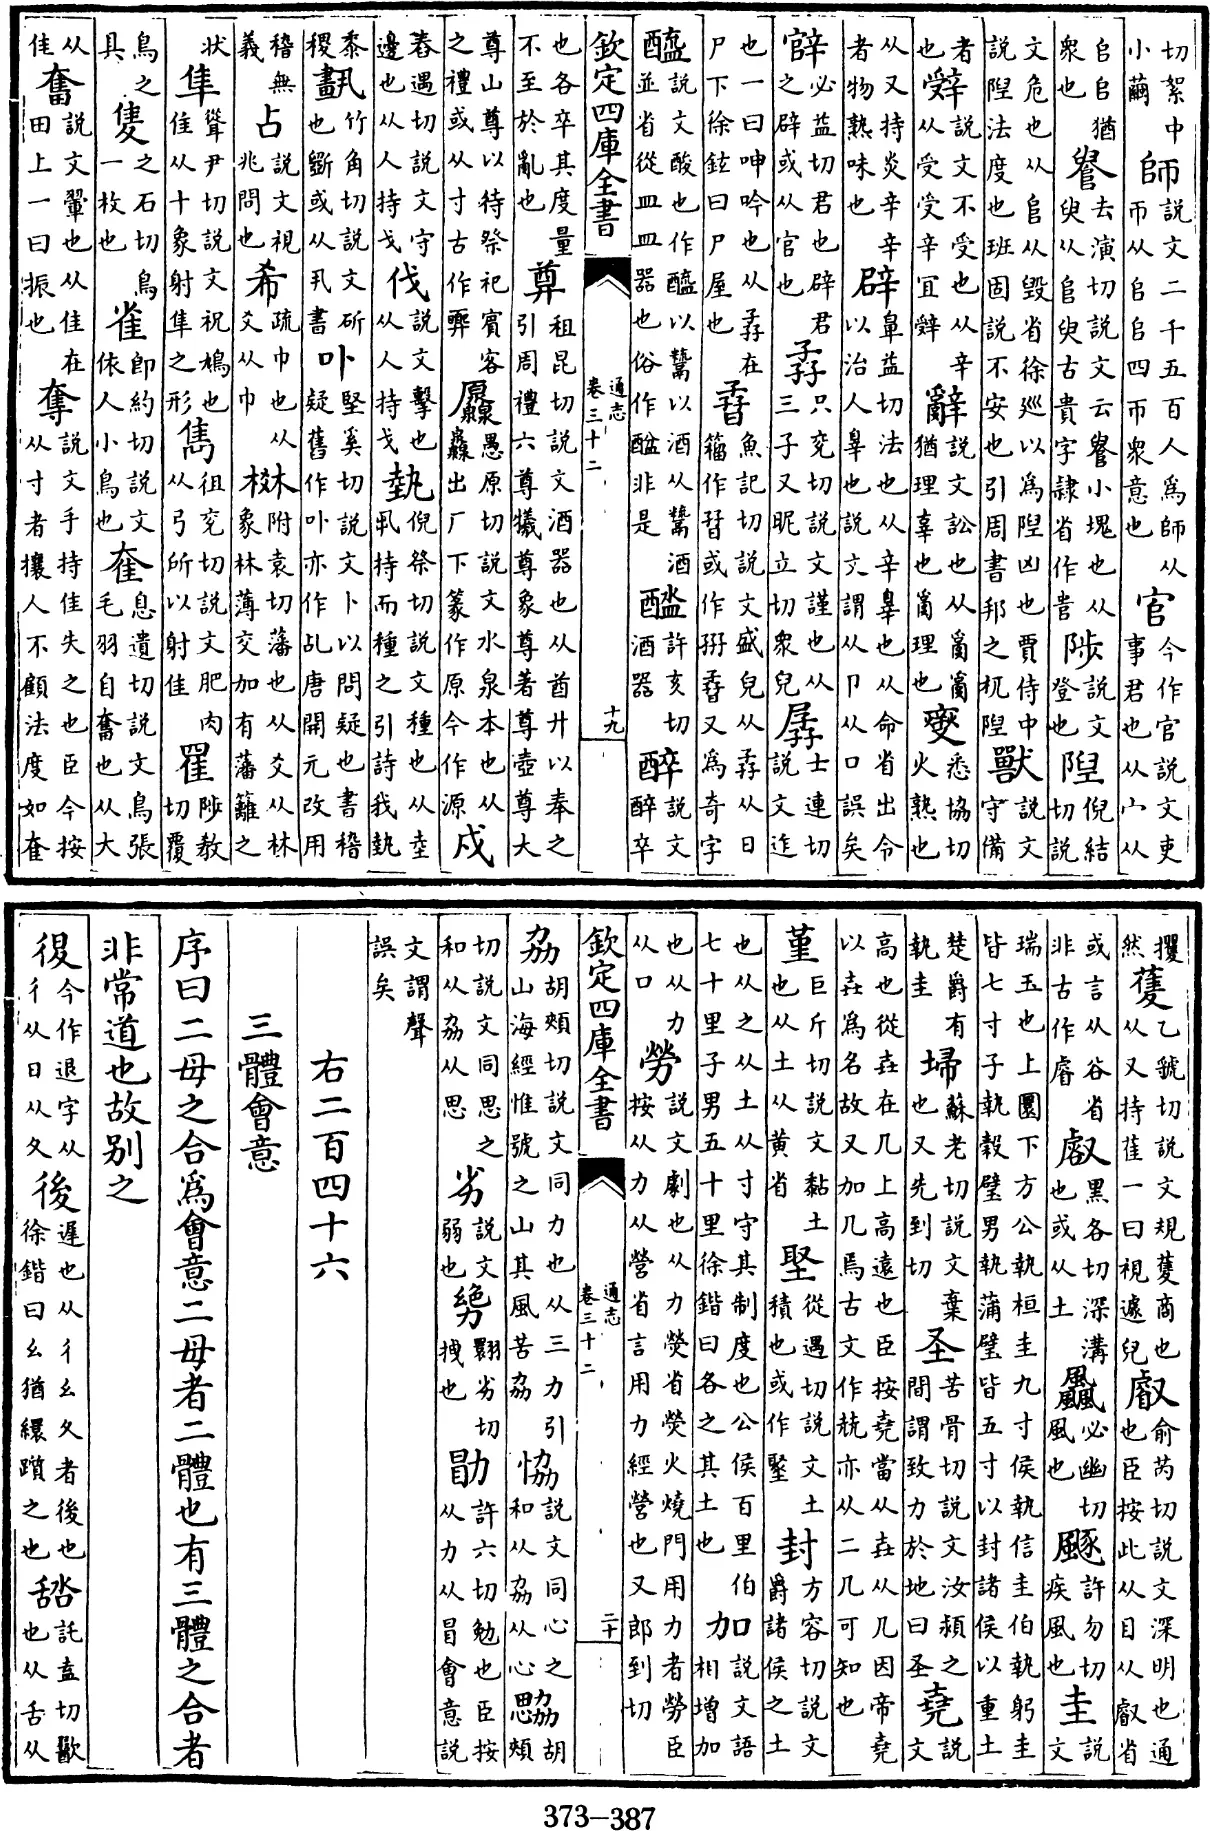 切絮中小繭師說文二千五百人爲師从帀从𠂤𠂤四帀衆意也官今作官說文吏事君也从宀从
𠂤𠂤猶衆也𠳋去演切說文云𠳋小塊也从臾从𠂤臾古貴字隷省作𠳋陟說文登也隉倪結切說
文危也从𠂤从毀省徐廵以爲隉凶也賈侍中說隉法度也班固說不安也引周書邦之杌隉獸說文守備
者也辤說文不受也从辛从受受辛宜辤辭說文訟也从𤔔𤔔猶理辜也𤔔理也燮悉協切火熟也
从又持炎辛辛者物熟味也辟皐益切法也从辛辠也从命省出令以治人辠也說文謂从卩从口誤矣
必益切君也辟君之辟或从官也孨只兖切說文謹也从三子又昵立切衆皃孱士連切說文迮
也一曰呻吟也从孨在尸下徐鉉曰尸屋也孴魚記切說文盛皃从孨从日籀作或作又爲奇字
醯說文酸也作醯以鬻以酒从鬻酒並省從皿皿器也俗作非是許亥切酒器醉說文醉卒
欽定四庫全書 通志 卷三十二 十九
也各卒其度量不至於亂也尊祖昆切說文酒器也从酋廾以奉之引周禮六尊犧尊象尊著尊壺尊大
尊山尊以待祭祀賓客之禮或从寸古作厵愚原切說文水泉本也从灥出厂下篆作原今作源戍
舂遇切說文守邊也从人持戈伐說文擊也从人持戈埶倪祭切說文種也从坴丮持而種之引詩我埶
黍稷竹角切說文斫也斲或从丮書卟堅奚切說文卜以問疑也書稽疑舊作卟亦作乩唐開元改用
稽無義占說文視兆問也希疏巾也从爻从巾棥附袁切藩也从爻从林象林薄交加有藩籬之
狀隼聳尹切說文祝鳩也隹从十象射隼之形雋徂兖切說文肥肉从弓所以射隹䍜陟教切覆
鳥之具隻之石切鳥一枚也雀卽約切說文依人小鳥也奞息遺切說文鳥張毛羽自奮也从大
从隹奮說文翬也从隹在田上一曰振也奪說文手持隹失之也臣今按从寸者攘人不顧法度如奞
攫然蒦乙虢切說文規蒦商也从又持雈一曰視遽皃叡俞芮切說文深明也通也臣按此从目从叡省
或言从谷省非古作睿叡黑各切深溝也或从土飍必幽切風也颵許勿切疾風也圭說文
瑞玉也上圜下方公執桓圭九寸侯執信圭伯執躬圭皆七寸子執穀璧男執蒲璧皆五寸以封諸侯以重土
楚爵有執圭埽蘇老切說文棄也又先到切圣苦骨切說文汝潁之間謂致力於地曰圣堯說文
高也從垚在几上高遠也臣按堯當从垚从几因帝堯以垚爲名故又加几焉古文作兟亦从二几可知也
堇巨斤切說文黏土也从土从黄省堅從遇切說文土積也或作聚封方容切說文爵諸侯之土
也从之从土从寸守其制度也公侯百里伯七十里子男五十里徐鍇曰各之其土也加說文語相增加
也从力从口勞說文劇也从力熒省熒火燒門用力者勞臣按从力从營省言用力經營也又郎到切
欽定四庫全書 通志 卷三十二 二十
劦胡頰切說文同力也从三力引山海經惟號之山其風苦劦恊說文同心之和从劦从心勰胡頰
切說文同思之和从劦从思劣說文弱也翾劣切拽也勖許六切勉也臣按从力从冒會意說
文謂聲誤矣
右二百四十六
三體會意
序曰二母之合爲會意二母者二體也有三體之合者
非常道也故别之
復今作退字从彳从日从夊後遲也从彳幺夊者後也徐鍇曰幺猶繯躓之也𦧟託盍切歠也从舌从
373—387